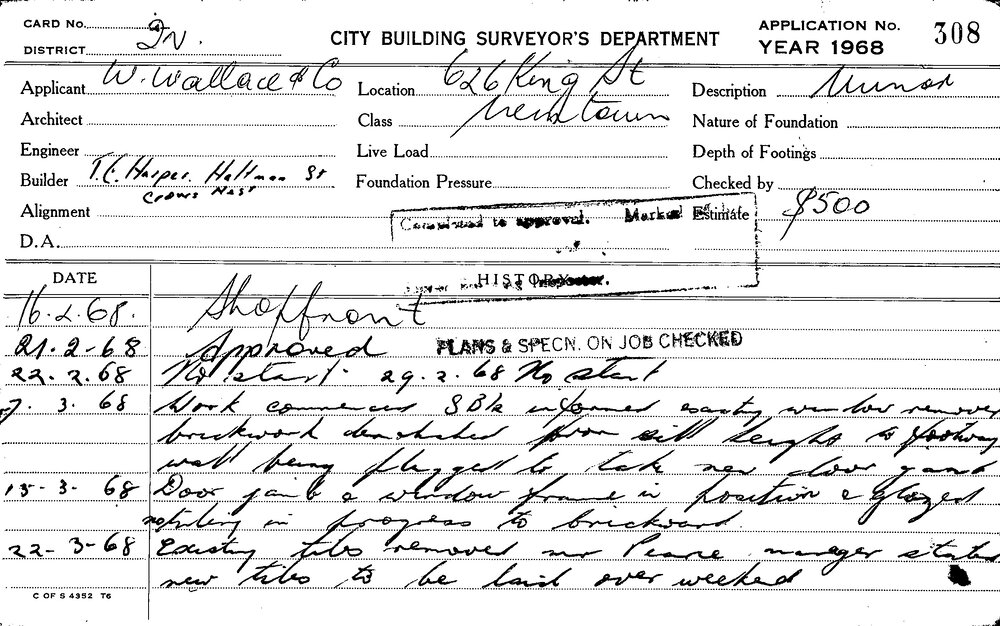 CARD No.
DISTRICT IN.
CITY BUILDING SURVEYOR'S DEPARTMENT
APPLICATION No. 308
YEAR 1968
Applicant W. Wallace & Co
Location 626 King St
Newtown
Description Minor
Architect
Class
Nature of Foundation
Engineer
Live Load
Depth of Footings
Builder T.C. Harper. St
Crows Nest
Foundation Pressure
Checked by
Alignment
to approval. Marked
Estimate $500
D.A.
DATE
HISTORY
16.2.68. Shopfront
21.2-68 Approved PLANS & SPECN. ON JOB CHECKED
22.2.68 No start. 29.2.68 No start
7. 3. 68 Work commenced informed existing window removed
brickwork demolished from sill height to footway
wall being plugged to take new door jamb
15-3-68 Door jamb & window frame in position & glazed
in progress to brickwork
22-3-68 Existing tiles removed mr Pearce manager stated
new tiles to be laid over weekend
C OF S 4352 T6